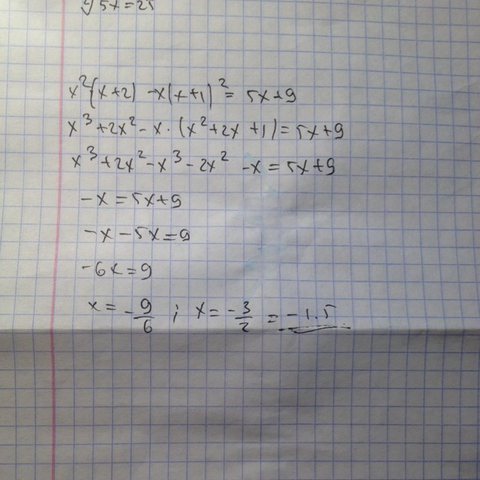 5x=25
x²(x+2) -x(x+1)² = 5x+9
x³+2x²-x·(x²+2x+1)=5x+9
x³+2x²-x³-2x² -x=5x+9
-x=5x+9
-x-5x=9
-6x=9
x=-9/6 ; x=-3/2 = -1.5